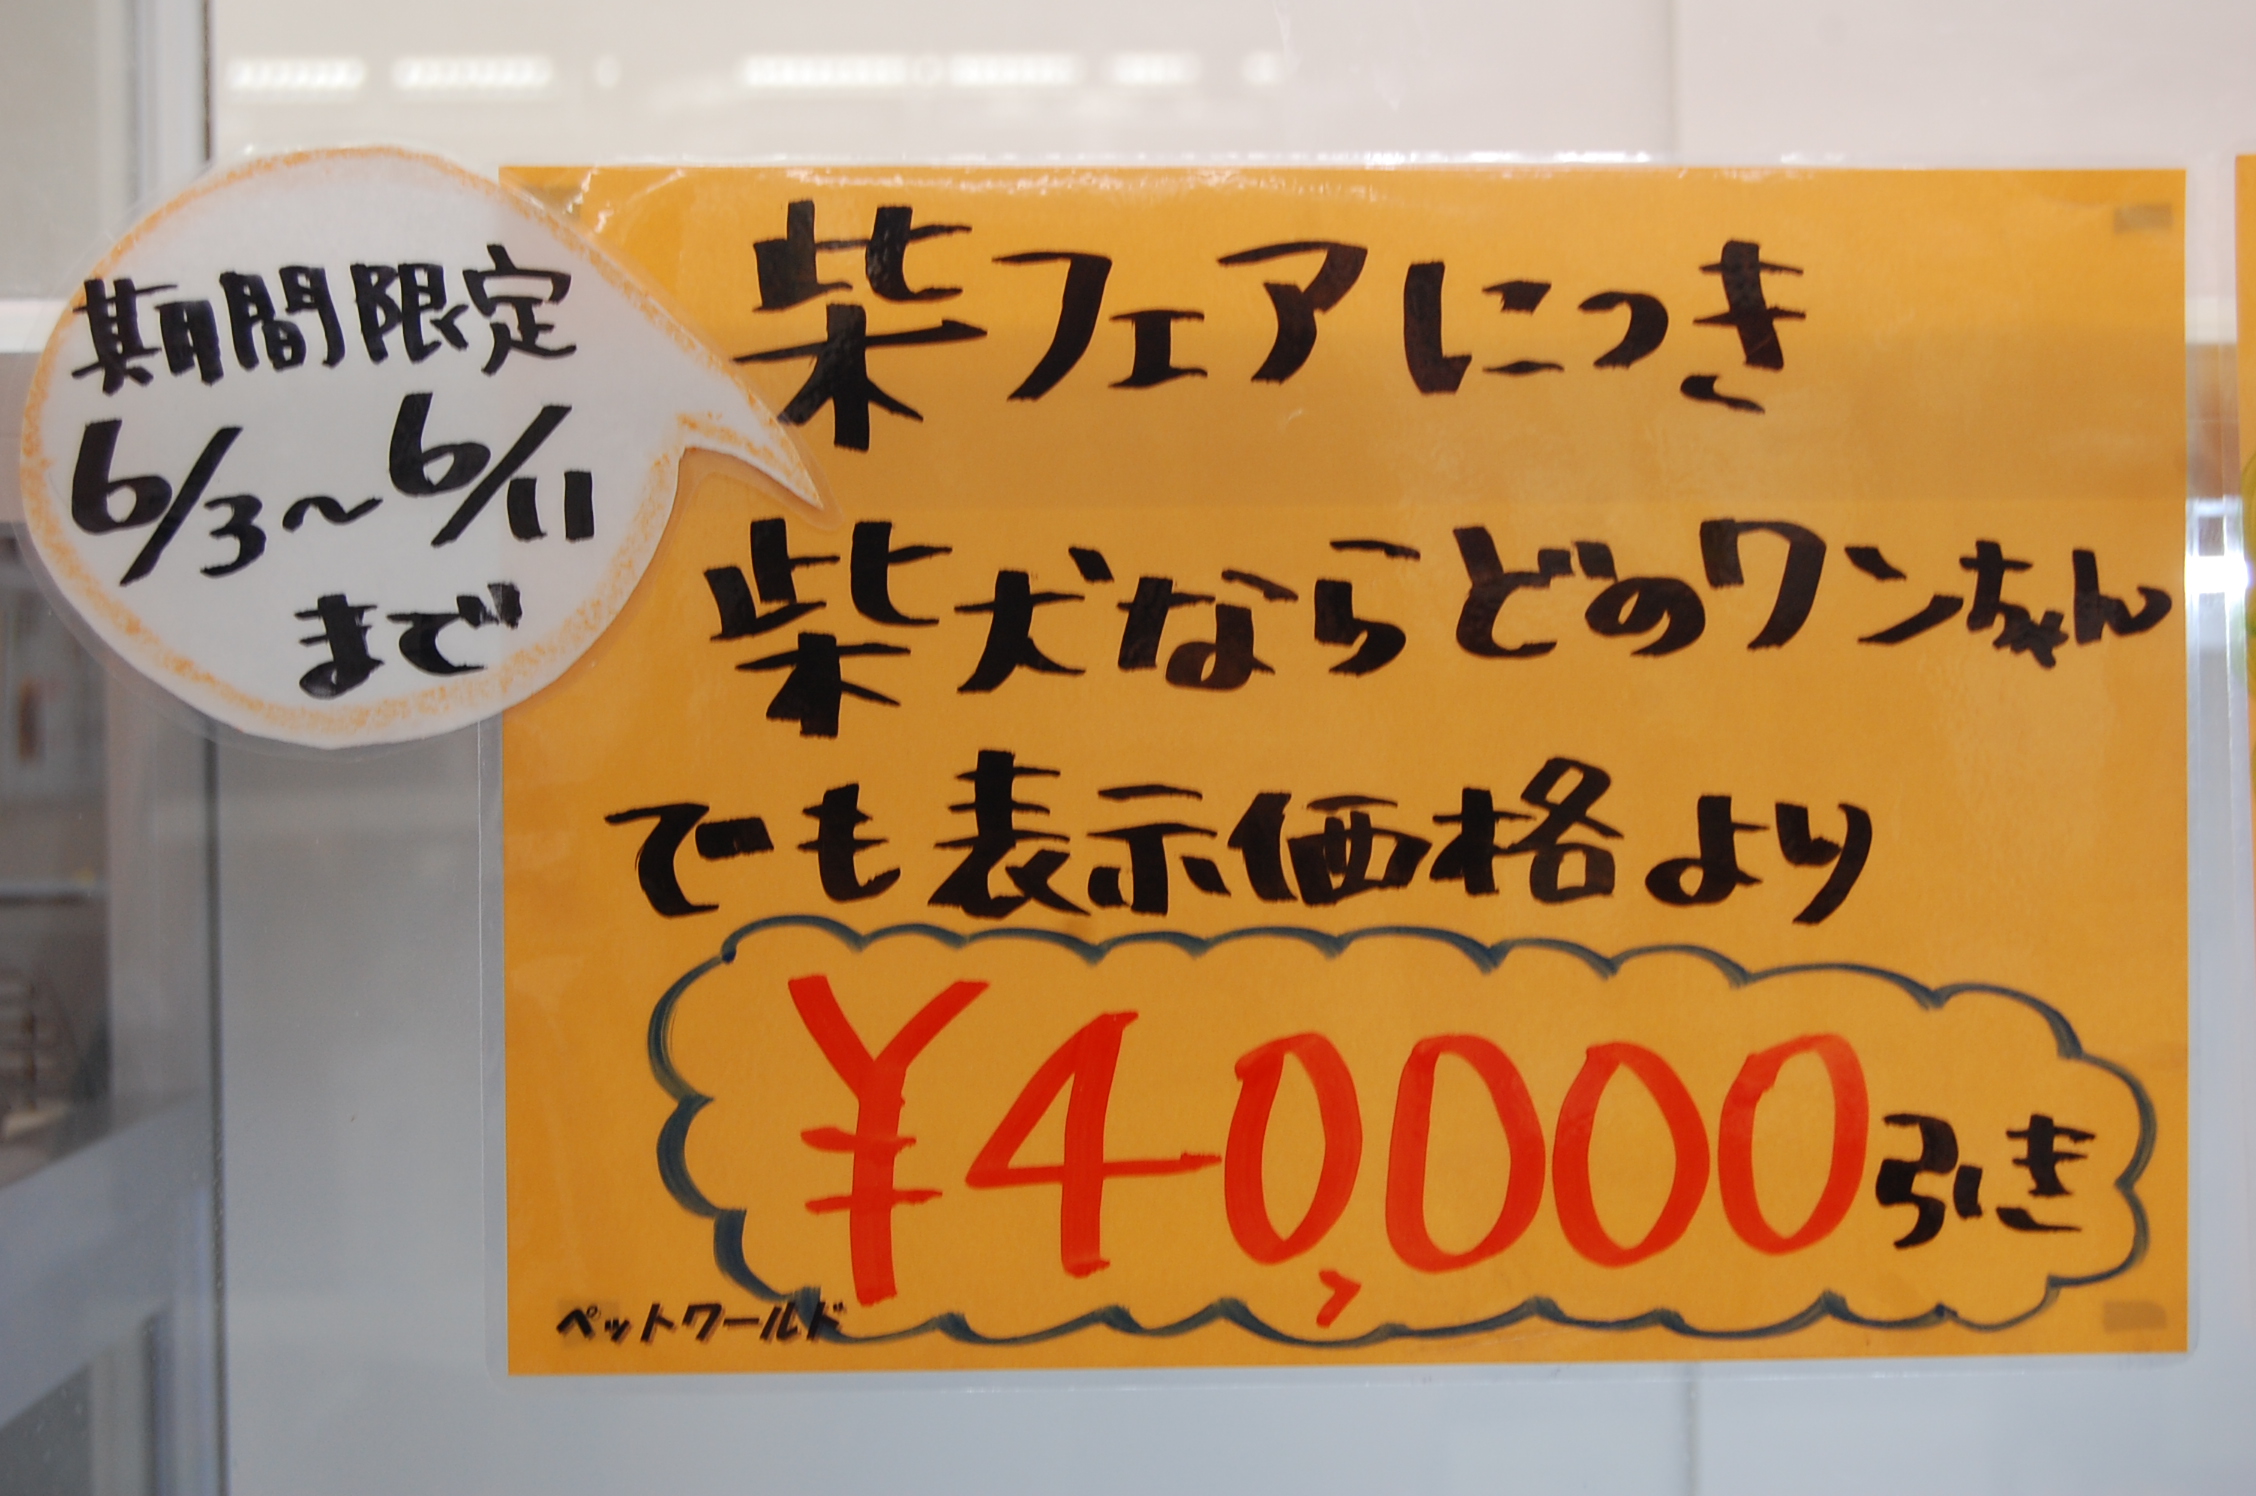 期間限定
6/3〜6/11
まで
柴フェアにつき
柴犬ならどのワンちゃん
でも表示価格より
¥40,000引き
ペットワールド